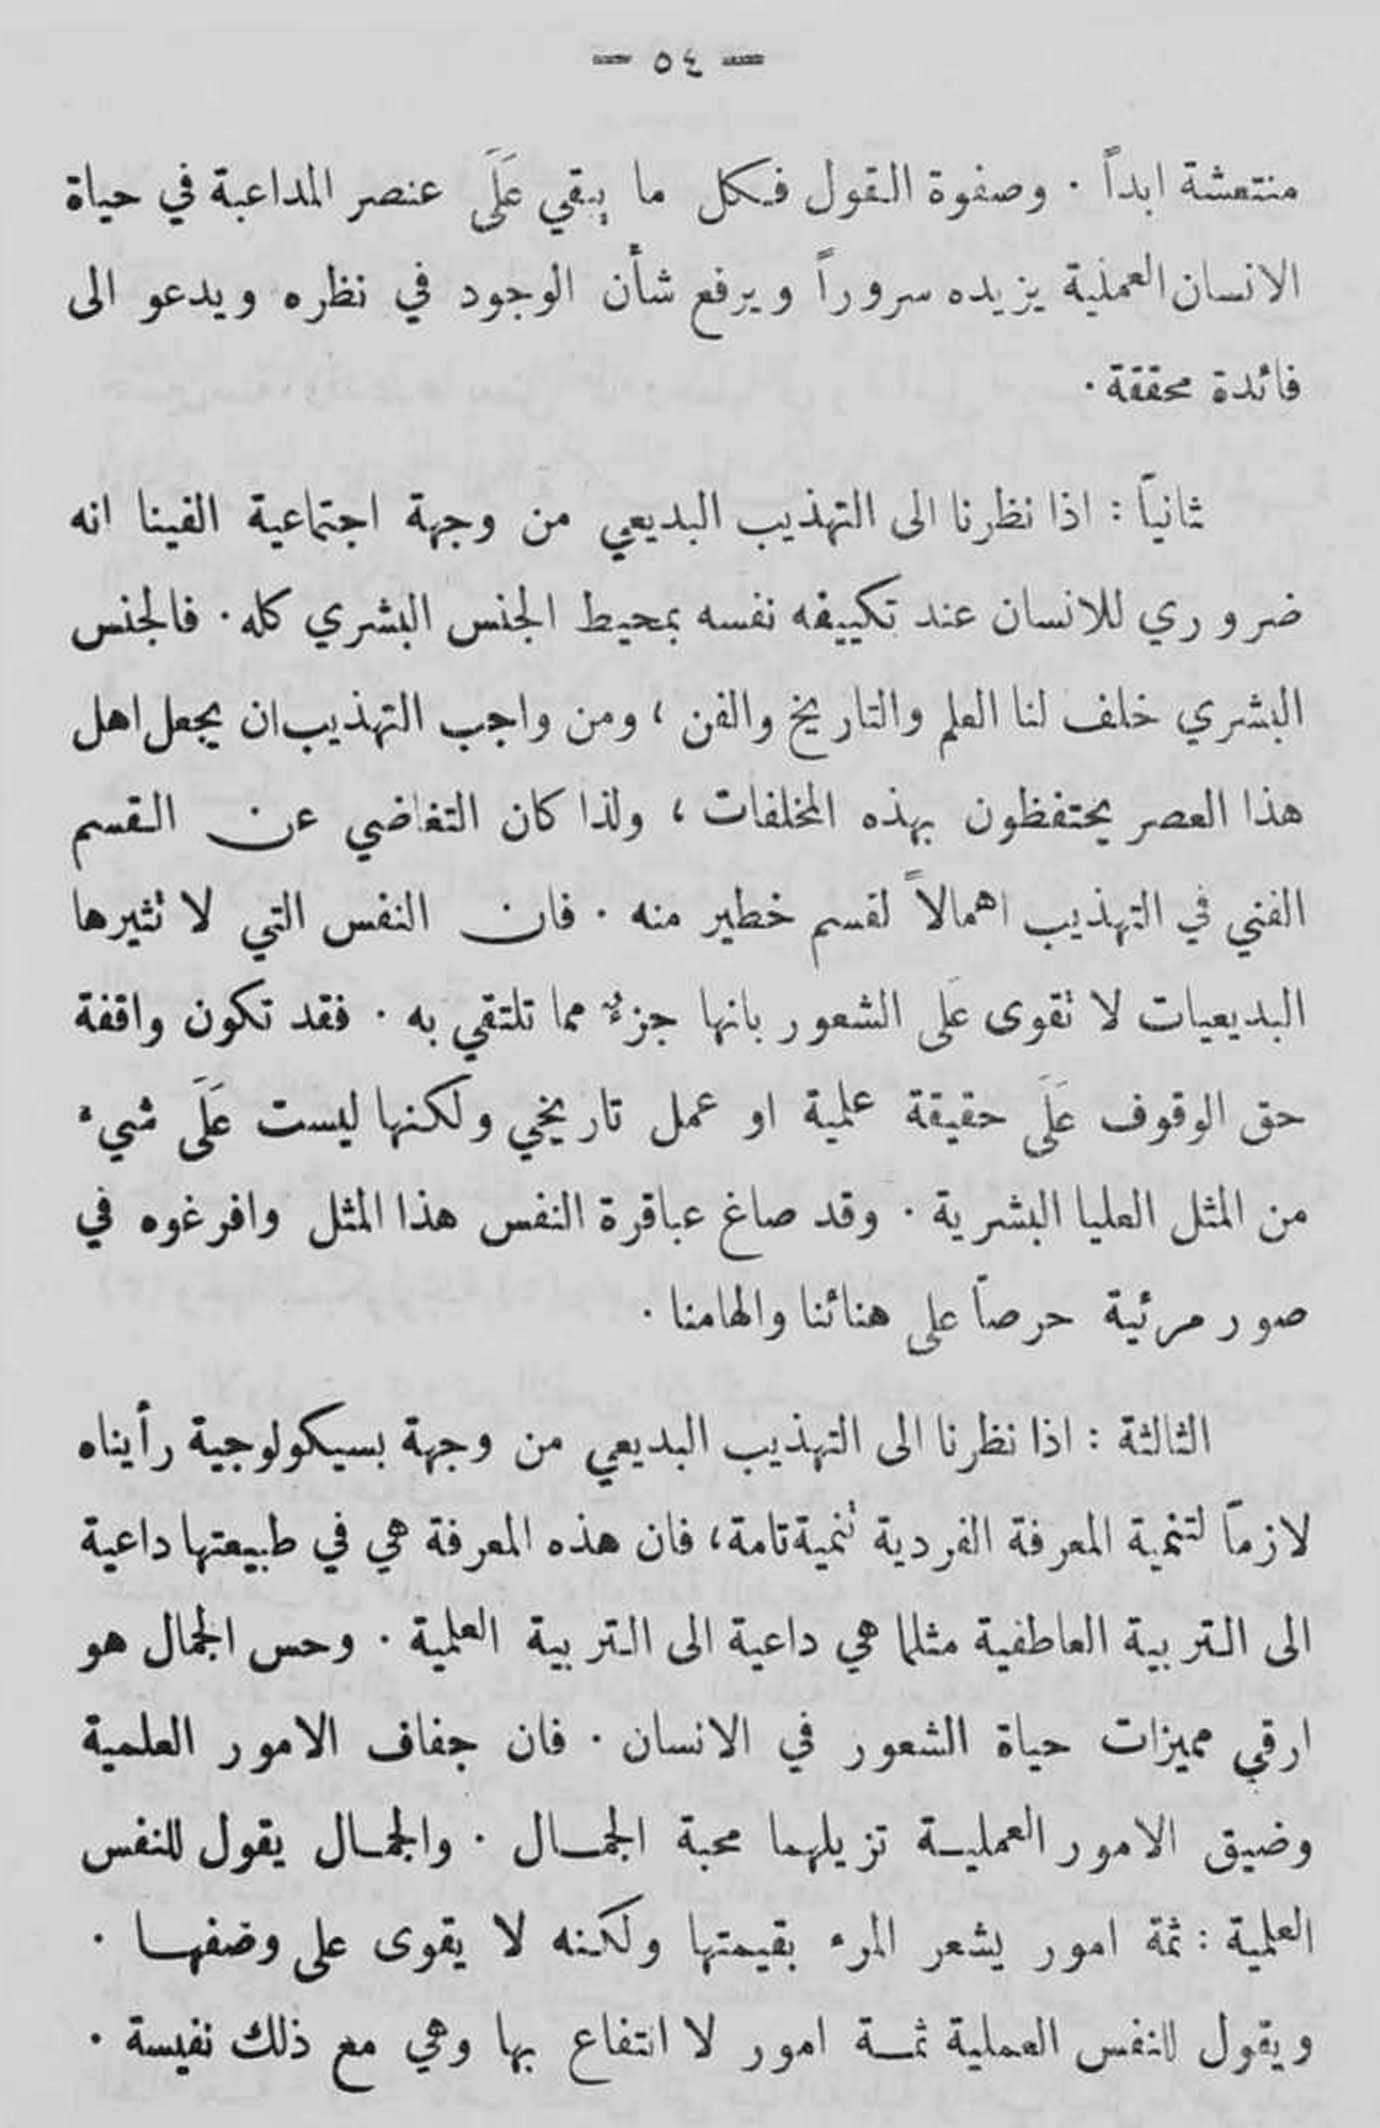 — ٥٤ —
منتعشة ابداً . وصفوة القول فكل ما يبقي عَلَى عنصر المداعبة في حياة
الانسان العملية يزيده سروراً ويرفع شأن الوجود في نظره ويدعو الى
فائدة محققة .
ثانياً : اذا نظرنا الى التهذيب البديعي من وجهة اجتماعية الفينا انه
ضروري للانسان عند تكييفه نفسه بمحيط الجنس البشري كله . فالجنس
البشري خلف لنا العلم والتاريخ والفن ، ومن واجب التهذيب ان يجعل اهل
هذا العصر يحتفظون بهذه المخلفات ، ولذا كان التغاضي عن القسم
الفني في التهذيب اهمالاً لقسم خطير منه . فان النفس التي لا تثيرها
البديعيات لا تقوى عَلَى الشعور بانها جزءٌ مما تلتقي به . فقد تكون واقفة
حق الوقوف عَلَى حقيقة علمية او عمل تاريخي ولكنها ليست عَلَى شيء
من المثل العليا البشرية . وقد صاغ عباقرة النفس هذا المثل وافرغوه في
صور مرئية حرصاً على هنائنا والهامنا .
الثالثة : اذا نظرنا الى التهذيب البديعي من وجهة بسيكولوجية رأيناه
لازماً لتنمية المعرفة الفردية تنمية تامة ، فان هذه المعرفة هي في طبيعتها داعية
الى التربية العاطفية مثلما هي داعية الى التربية العلمية . وحس الجمال هو
ارقي مميزات حياة الشعور في الانسان . فان جفاف الامور العلمية
وضيق الامور العملية تزيلهما محبة الجمال . والجمال يقول للنفس
العلمية : ثمة امور يشعر المرء بقيمتها ولكنه لا يقوى على وضفها .
ويقول للنفس العملية ثمة امور لا انتفاع بها وهي مع ذلك نفيسة .